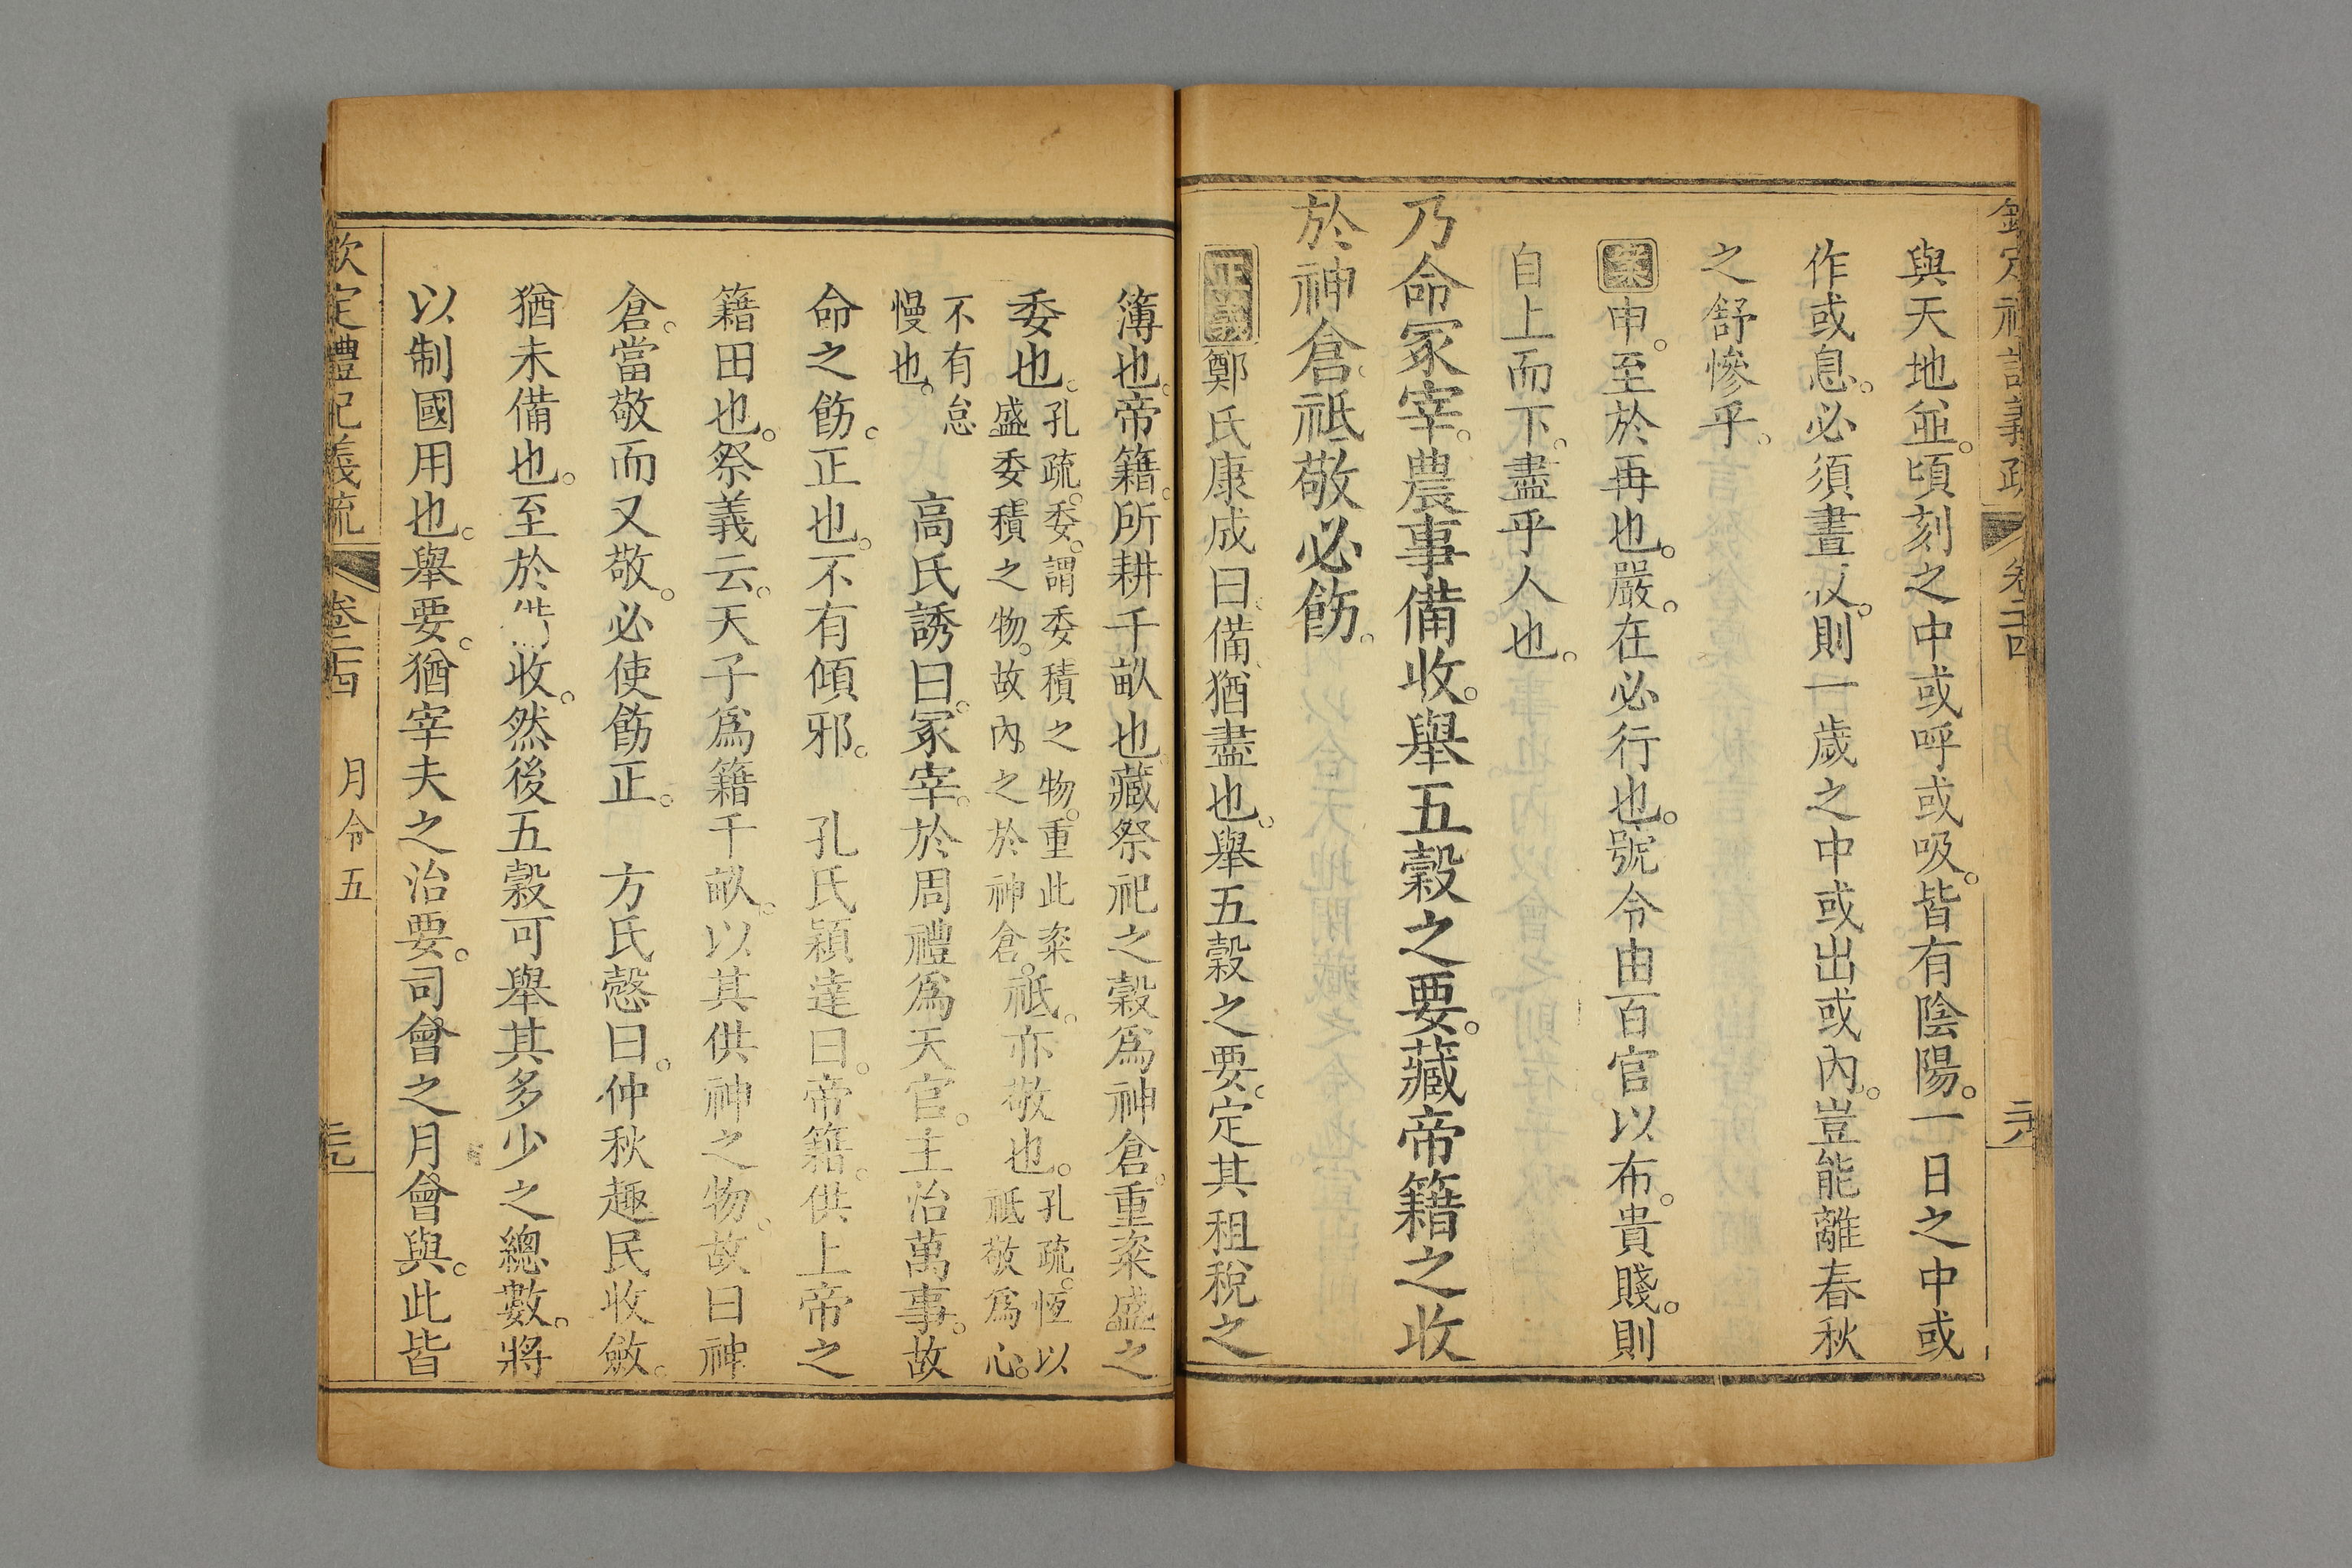 與天地並。頃刻之中或呼或吸。皆有陰陽。一日之中或
作或息。必須晝夜。則一歲之中或出或內。豈能離春秋
之舒慘乎。
案申。至於再也。嚴。在必行也。號令由百官以布。貴賤。則
自上而下。盡乎人也。
乃命冢宰。農事備收。舉五穀之要。藏帝籍之收
於神倉。祗敬必飭。
正義鄭氏康成曰。備。猶盡也。舉五穀之要。定其租稅之
簿也。帝籍。所耕千畝也。藏祭祀之穀爲神倉。重粢盛之
委也。孔疏。委。謂委積之物。重此粢盛委積之物。故內之於神倉。祗。亦敬也。孔疏。恆以祗敬爲心。
不有怠慢也。高氏誘曰。冢宰。於周禮爲天官。主治萬事。故
命之飭。正也。不有傾邪。孔氏穎達曰。帝籍。供上帝之
籍田也。祭義云。天子爲籍千畝。以其供神之物。故曰神
倉。當敬而又敬。必使飭正。方氏慤曰。仲秋趣民收斂。
猶未備也。至於收。然後五穀可舉其多少之總數。將
以制國用也。舉要。猶宰夫之治要。司會之月會與。此皆
欽定禮記義疏 卷二十四 月令五